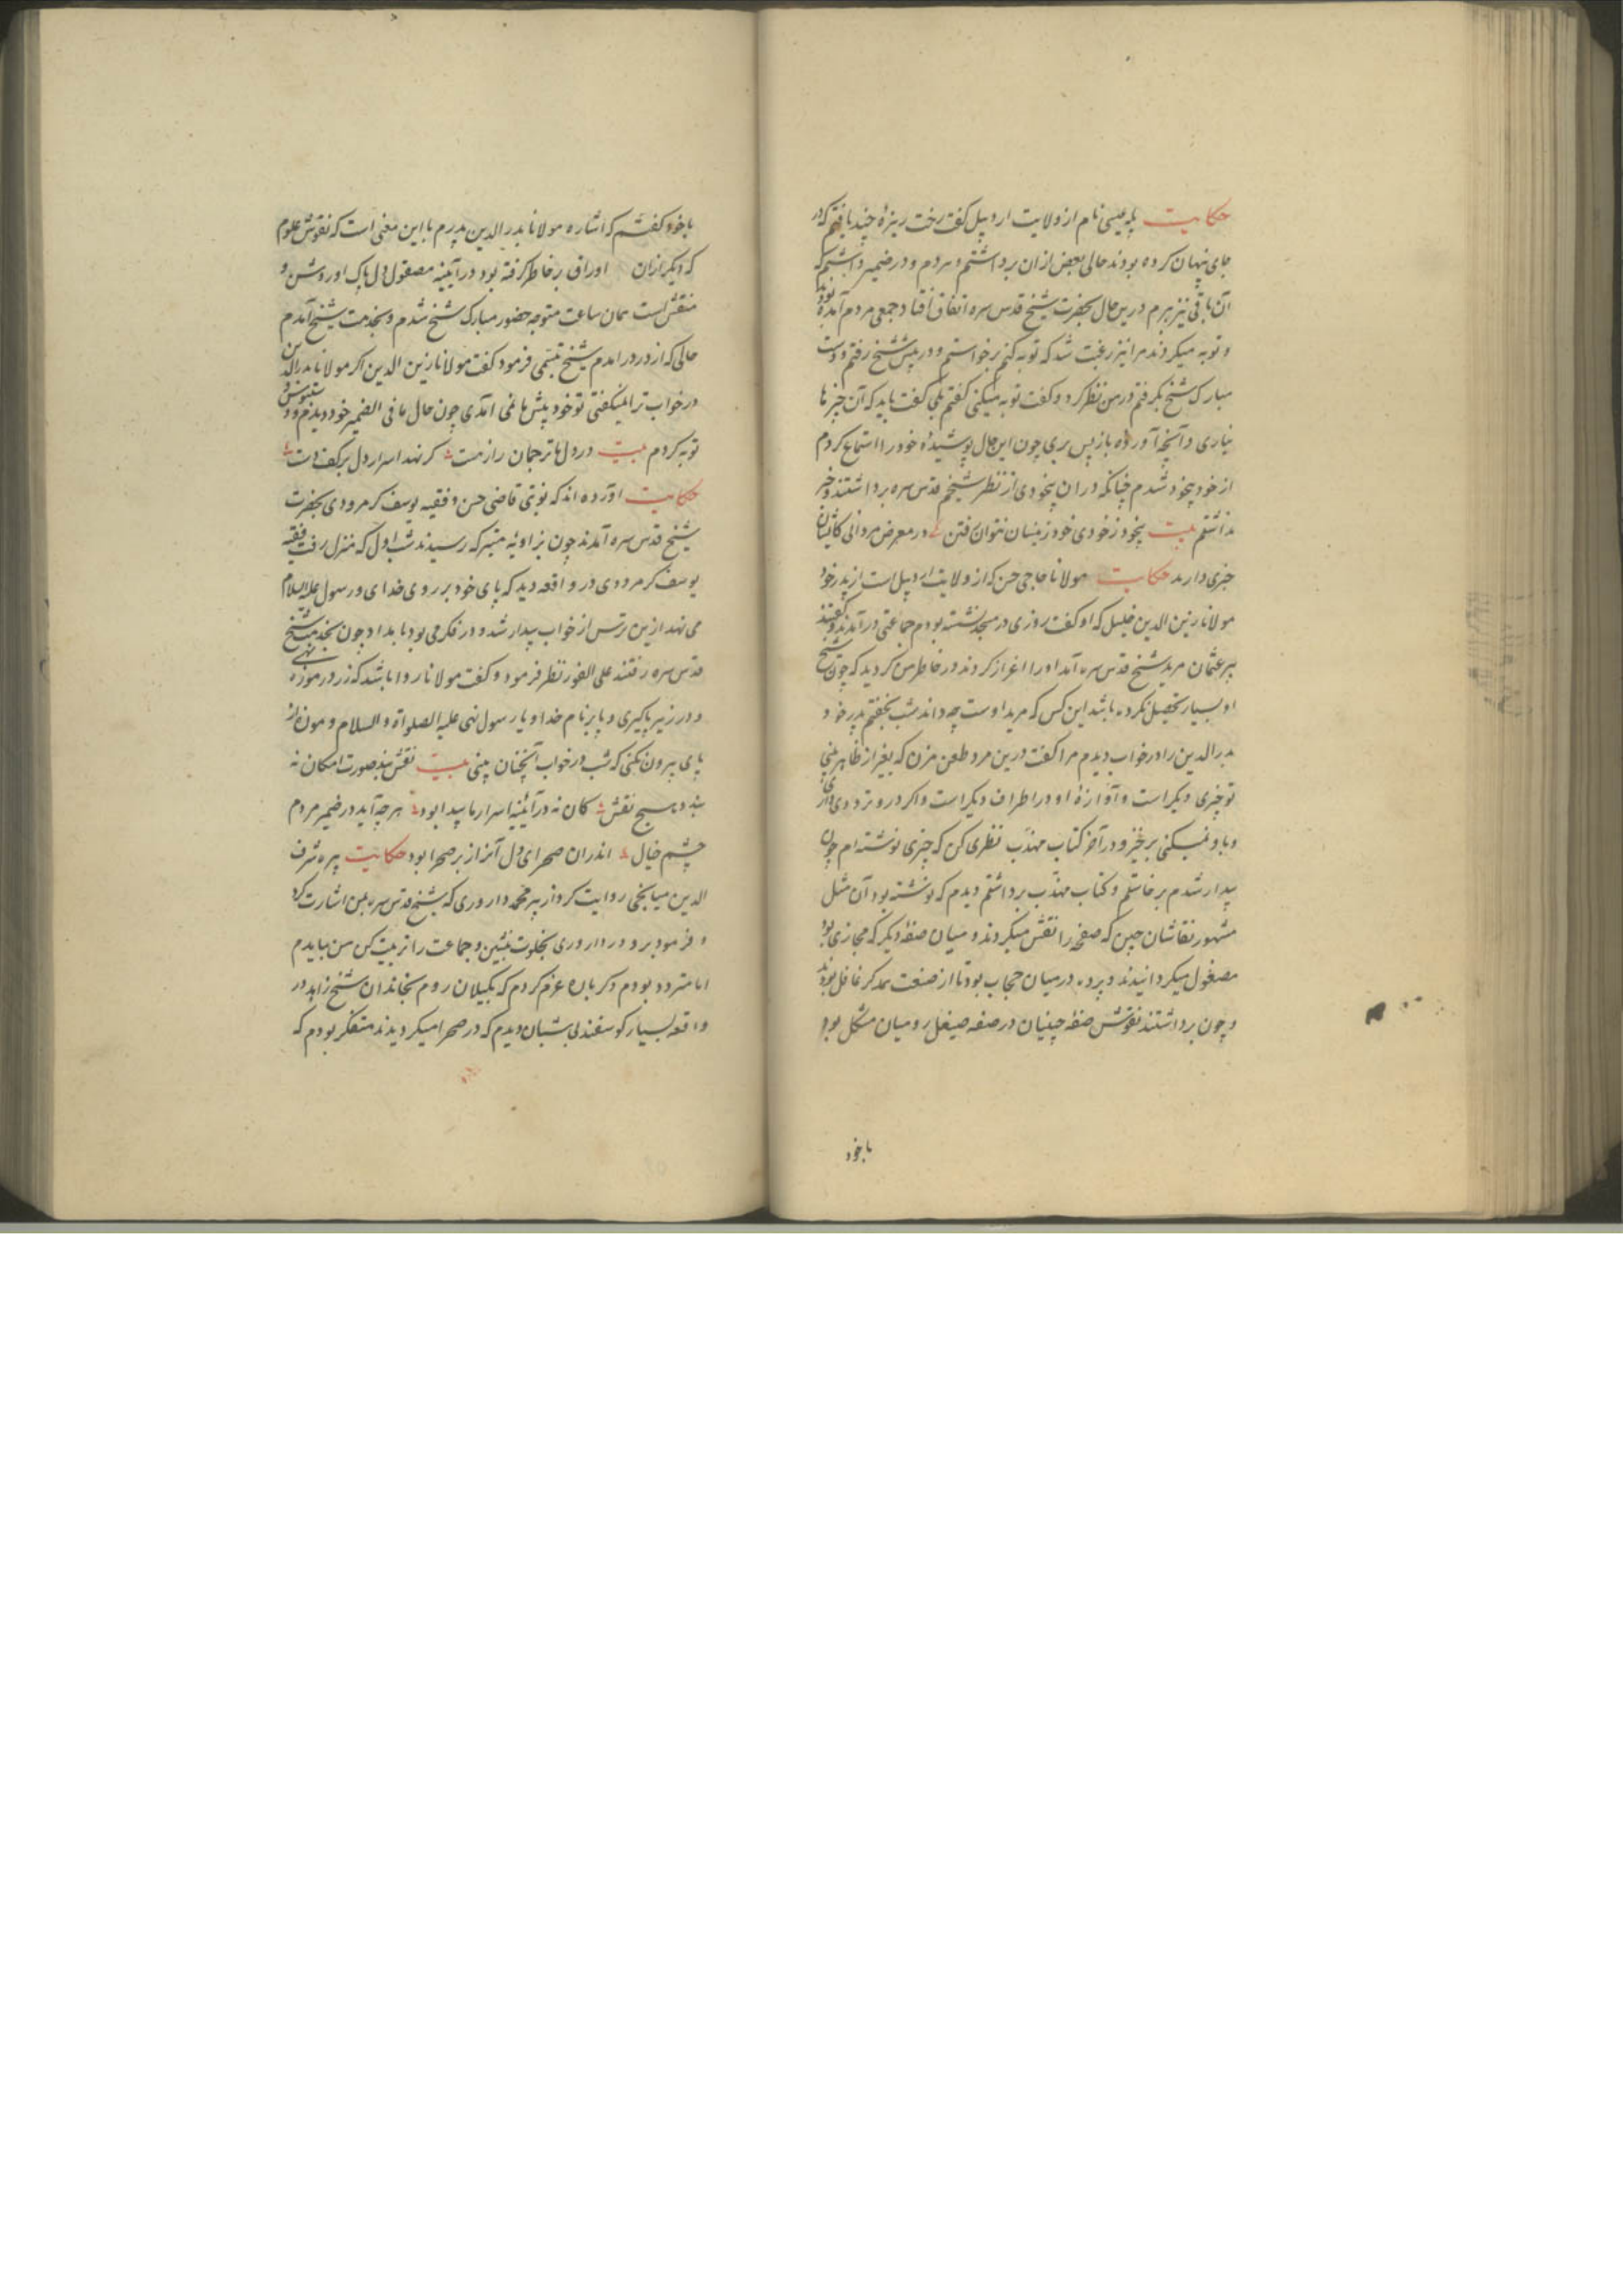 حکایت پله عیسی نام از ولایت اردبیل گفت رخت ریزهٔ چند یافتم که در
جای پنهان کرده بودند حالی بعضی ازان برداشتم و بردم و در ضمیر داشتم که
آن باقی نیز ببرم درین حال بحضرت شیخ قدس سره اتفاق افتاد جمعی مردم آمده بودند
و توبه میکردند مرا نیز رغبت شد که توبه کنم برخواستم و در پیش شیخ رفتم و دست
مبارک شیخ بگرفتم در من نظر کرد و گفت توبه میکنی گفتم بلی گفت باید که آن چیزها
نیاری و آنچه آوردهٔ باز پس بری چون این حال پوشیدهٔ خود را استماع کردم
از خود بیخود شدم چنانکه در ان بیخودی از نظر شیخم قدس سره برداشتند و خبر
نداشتم بیت بیخود ز خودی خود زینسان نتوان رفتن در معرض مردانی کایشان
خبری دارند حکایت مولانا حاجی حسن که از ولایت اردبیل است از پدر خود
مولانا زین الدین خلیل که او گفت روزی در مسجد نشسته بودم جماعتی در آمدند و گفتند
پیر عثمان مرید شیخ قدس سره آمد او را اعزاز کردند در خاطر من گردید که چون شیخ
او بسیار تحصیل نکرده باشد این کس که مرید اوست چه داند شب بخفتم پدر خود
بدر الدین را در خواب دیدم مرا گفت درین مرد طعن مزن که بغیر از ظاهر بینی
تو چیزی دیگر است و آوازهٔ او در اطراف دیگر است و اگر درو ترددی داری
و باور نمیکنی برخیز و در آخر کتاب مهذب نظری کن که چیزی نوشته ام چون
بیدار شدم برخاستم و کتاب مهذب برداشتم دیدم که نوشته بود آن مثل
مشهور نقاشان چین که صفحه را نقش میکردند و میان صفهٔ دیگر که مجازی بود
مصقول میگردانیدند و پرده درمیان حجاب بود تا از صنعت همدگر غافل بودند
و چون برداشتند نقوش صفهٔ چینیان در صفه صیقل رومیان مشکل بود
باخود
باخود گفتم که اشاره مولانا بدر الدین پدرم با این معنی است که نقوش علوم
که دیگر ازان اوراق بخاطر گرفته بود در آیینه مصقول دل پاک او روشن و
منقش است همان ساعت متوجه حضور مبارک شیخ شدم و بخدمت شیخ آمدم
حالی که از در در امدم شیخ تبسمی فرمود گفت مولانا زین الدین اگر مولانا بدر الدین
در خواب ترا نمیگفتی تو خود پیش ما نمی امدی چون حال ما فی الضمیر خود دیدم
توبه کردم بیت در دل ها ترجمان راز هست گر نهد اسرار دل بر کف دست
حکایت آورده اند که نوبتی قاضی حسن و فقیه یوسف گرمرودی بحضرت
شیخ قدس سره آمدند چون بزاویه متبرکه رسیدند شب اول که بمنزل رفت فقیه
یوسف گرمرودی در واقعه دید که پای خود بر روی خدای و رسول علیه السلام
می نهد ازین ترس از خواب بیدار شد و در فکر می بود بامداد چون بخدمت شیخ
قدس سره رفتند علی الفور نظر فرمود و گفت مولانا روا باشد که زر در موزه نهی
و در زیر پا گیری و پا بر نام خدا و یا رسول نهی علیه الصلواة و السلام و موزه از
پای بیرون نکنی که شب در خواب آنچنان بینی بیت نقش بند صورت امکان نه
بندد هیچ نقش کان نه در آئینهٔ اسرار ما پیدا بود هر چه آید در ضمیر مردم
چشم خیال اندران صحرای دل آنراز بر صحرا بود حکایت پیره شرف
الدین میانجی روایت کرد از پیر محمد داروری که شیخ قدس سره بمن اشارت کرد
و فرمود برو در داروری بخلوت بنشین و جماعت را تربیت کن من بیایدم
اما متردد بودم دگر باره عزم کردم که بگیلان روم بخاندان شیخ زاهد در
واقعه بسیار گوسفند بی شبان دیدم که در صحرا میگردیدند متفکر بودم که